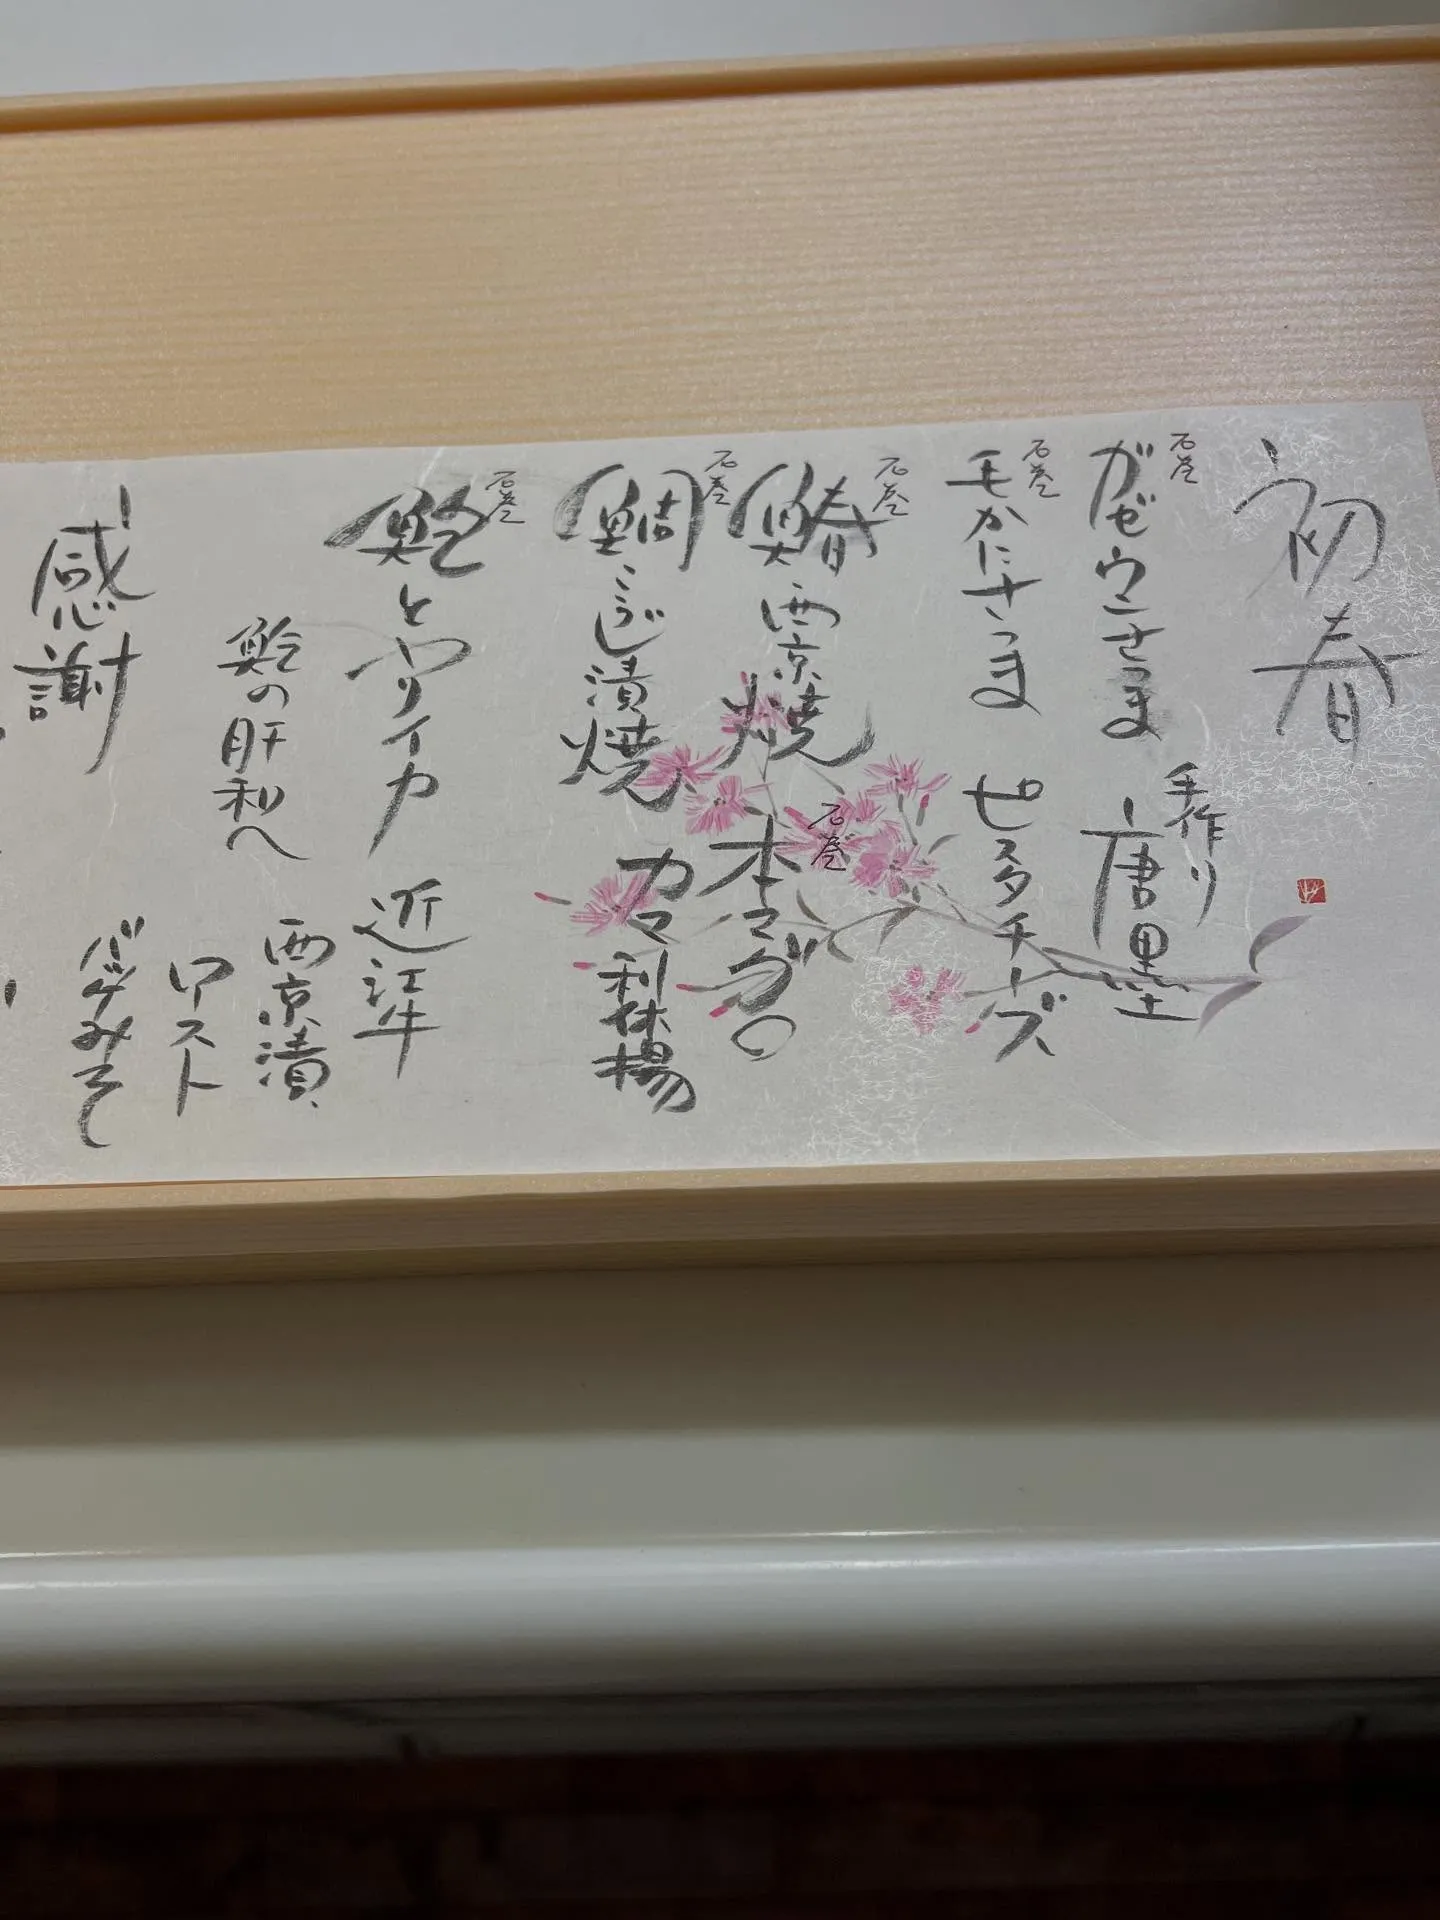 初春
石巻
ガゼウニさつま
手作り
唐墨
石巻
毛かにさつま
ピスタチーズ
石巻
鰆西京焼
石巻
本マグロ
石巻
鯛こうじ漬焼
カマ利休揚
石巻
鮑とヤリイカ
近江牛
西京漬
鮑の肝和へ
ロースト
バッケみそ
感謝